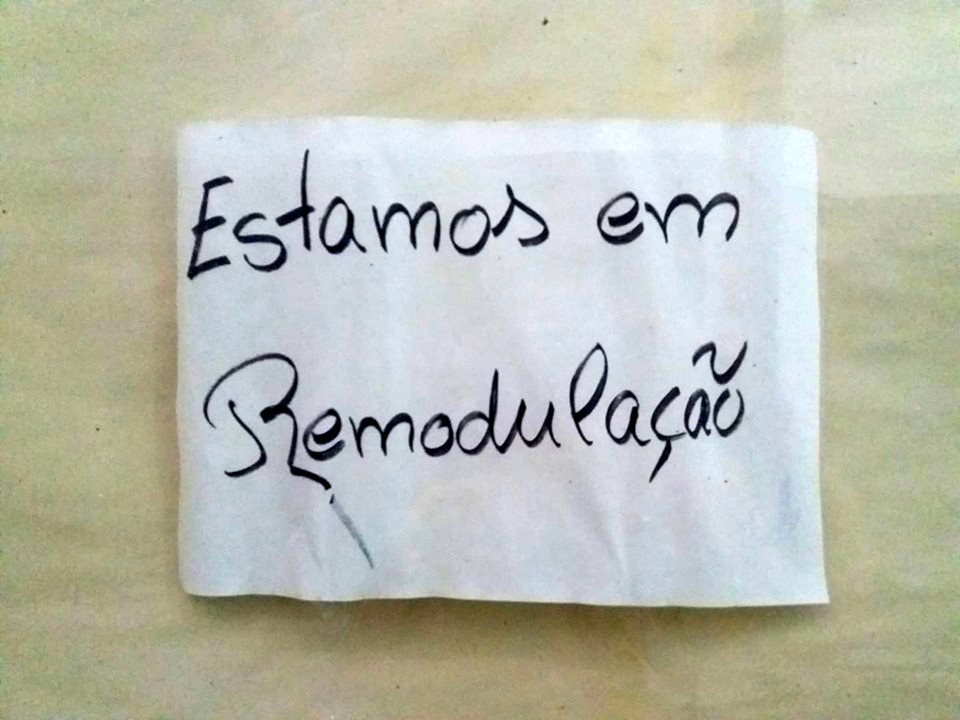 Estamos em
Remodulação